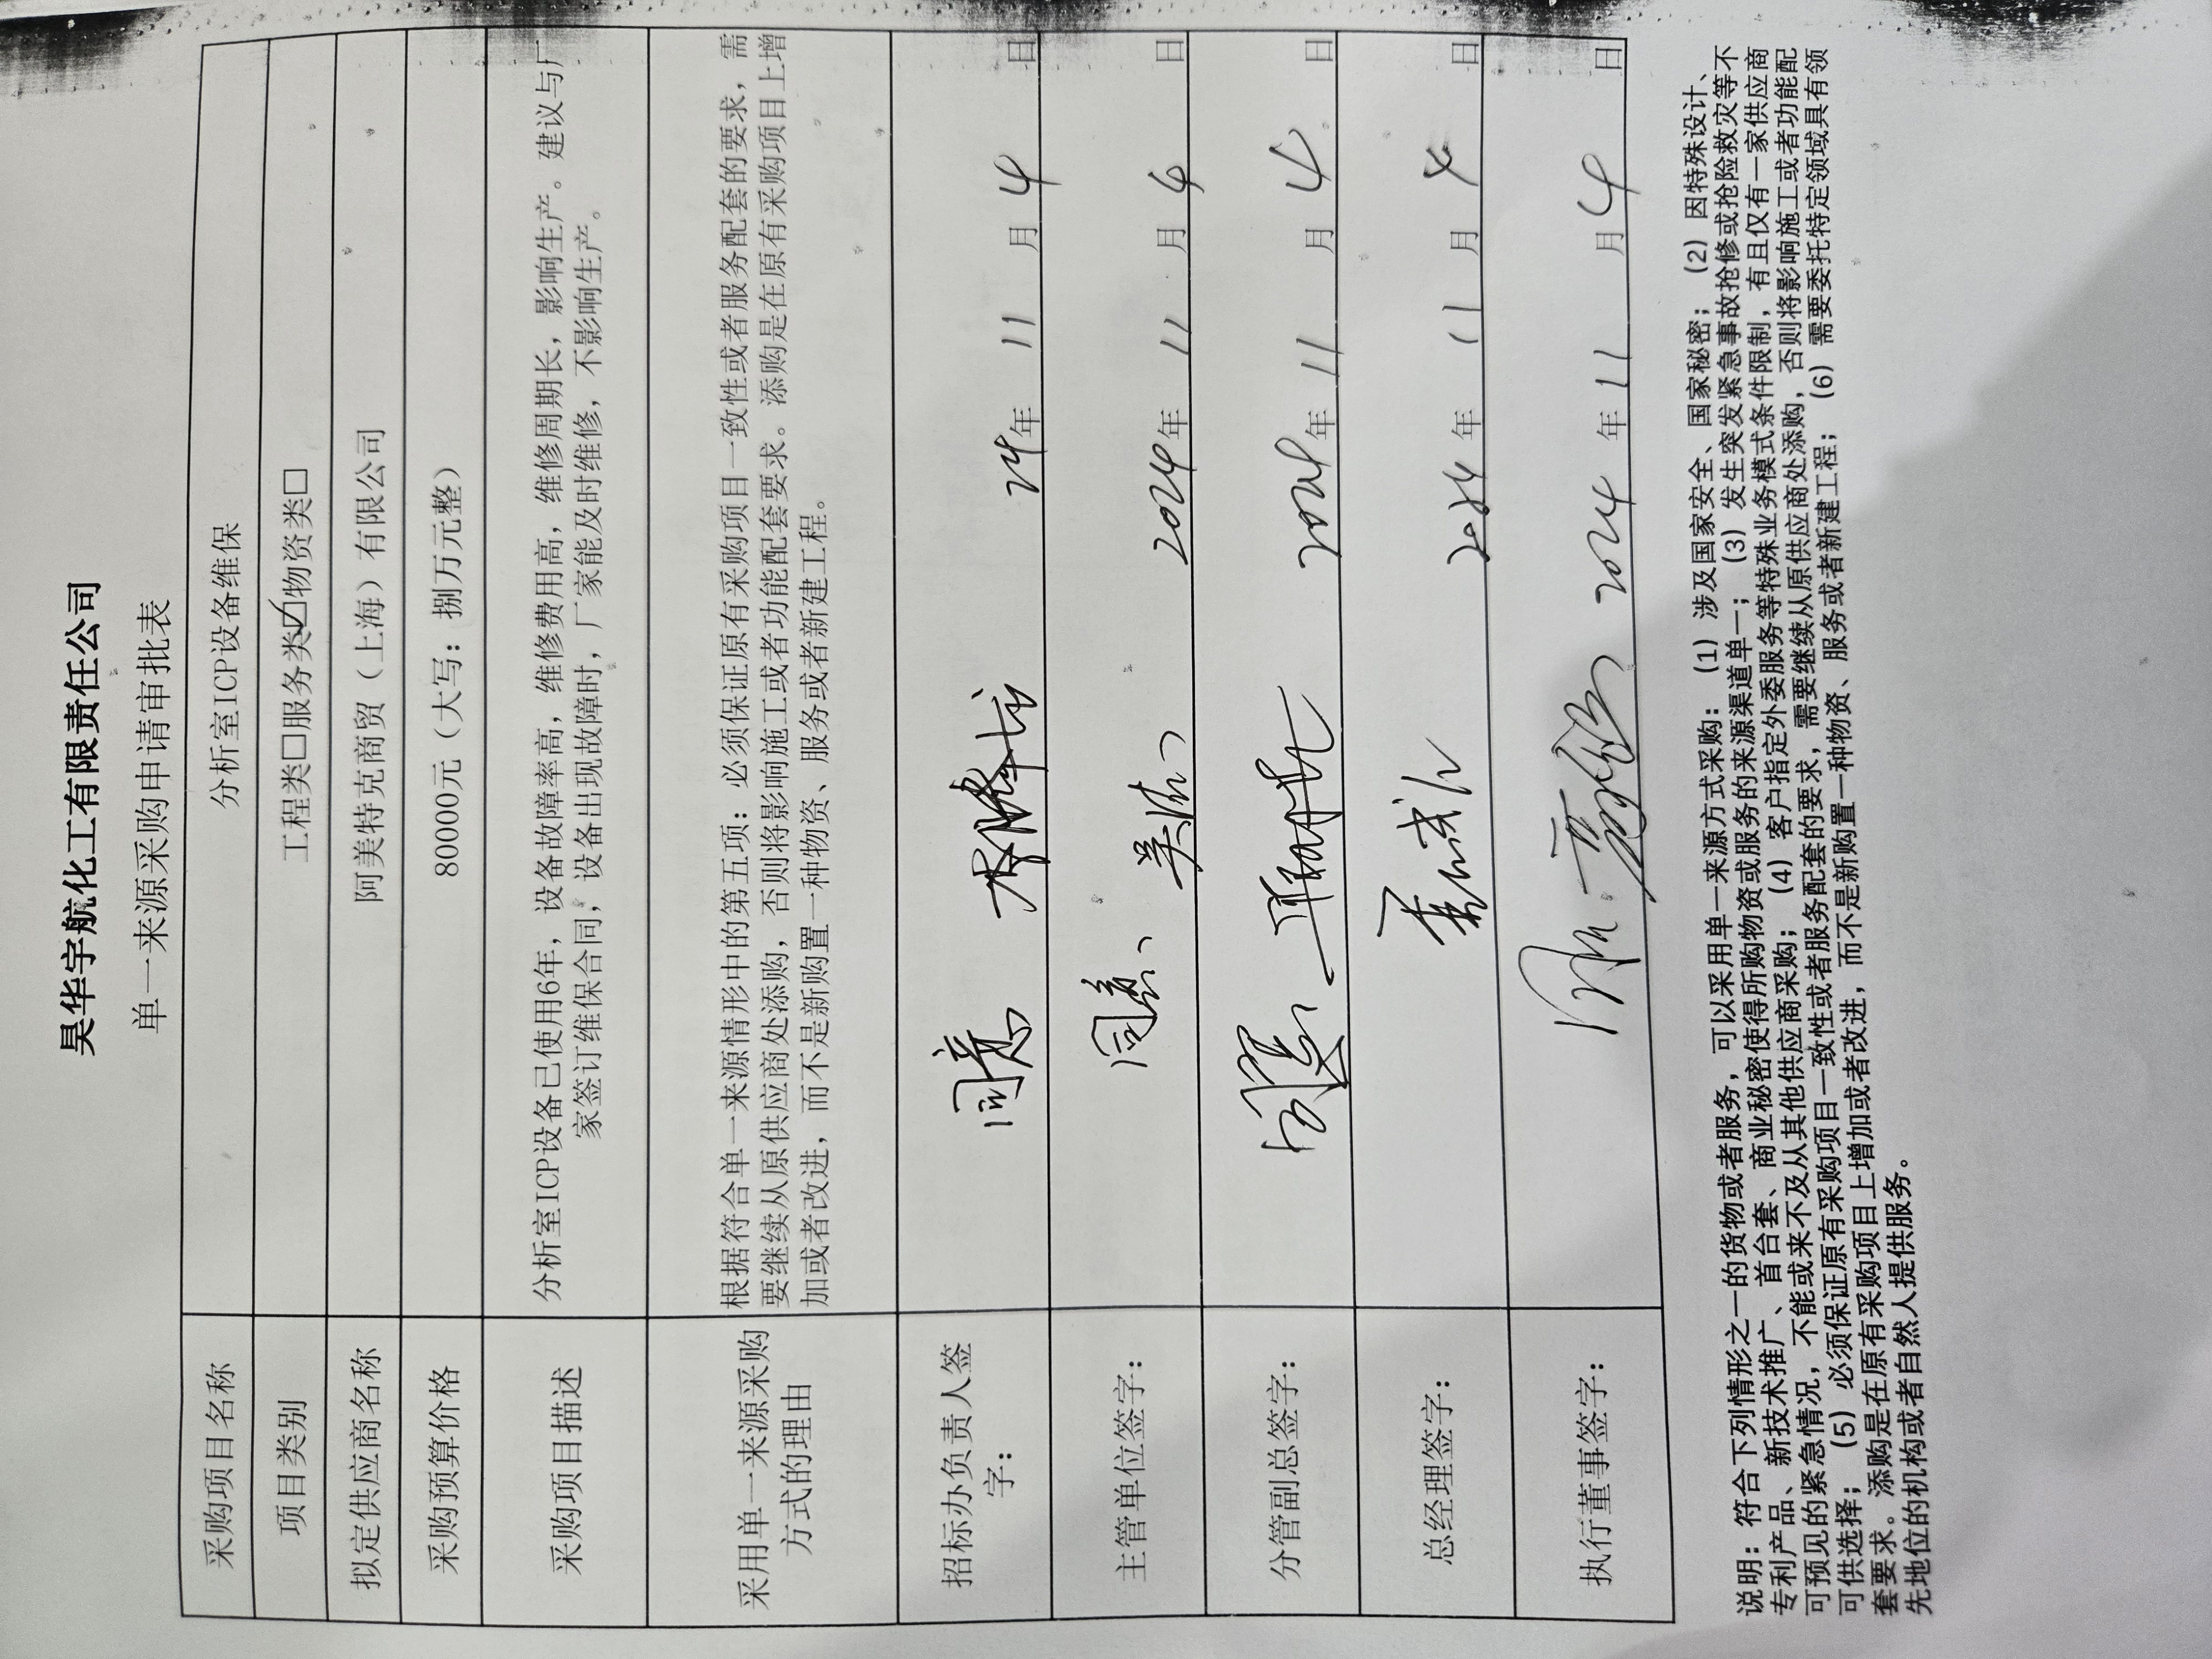 昊华宇航化工有限责任公司
单一来源采购申请审批表
采购项目名称 分析室ICP设备维保
项目类别 工程类□服务类☑物资类□
拟定供应商名称 阿美特克商贸（上海）有限公司
采购预算价格 80000元（大写：捌万元整）
采购项目描述
分析室ICP设备已使用6年，设备故障率高，维修费用高，维修周期长，影响生产。建议与厂
家签订维保合同，设备出现故障时，厂家能及时维修，不影响生产。
采用单一来源采购
方式的理由
根据符合单一来源情形中的第五项：必须保证原有采购项目一致性或者服务配套的要求，需
要继续从原供应商处添购，否则将影响施工或者功能配套要求。添购是在原有采购项目上增
加或者改进，而不是新购置一种物资、服务或者新建工程。
招标办负责人签
字：
同意 24年 11月 4日
主管单位签字： 同意 2024年 11月 4日
分管副总签字： 同意 2024年 11月 4日
总经理签字： 2024年 11月 4日
执行董事签字： 2024年 11月 4日
说明：符合下列情形之一的货物或者服务，可以采用单一来源方式采购：（1）涉及国家安全、国家秘密；（2）因特殊设计、
专利产品、新技术推广、首台套、商业秘密使得所购物资或服务的来源渠道单一；（3）发生突发紧急事故抢修或抢险救灾等不
可预见的紧急情况，不能或来不及从其他供应商采购；（4）客户指定外委服务等特殊业务模式条件限制，有且仅有一家供应商
可供选择；（5）必须保证原有采购项目一致性或者服务配套的要求，需要继续从原供应商处添购，否则将影响施工或者功能配
套要求。添购是在原有采购项目上增加或者改进，而不是新购置一种物资、服务或者新建工程；（6）需要委托特定领域具有领
先地位的机构或者自然人提供服务。